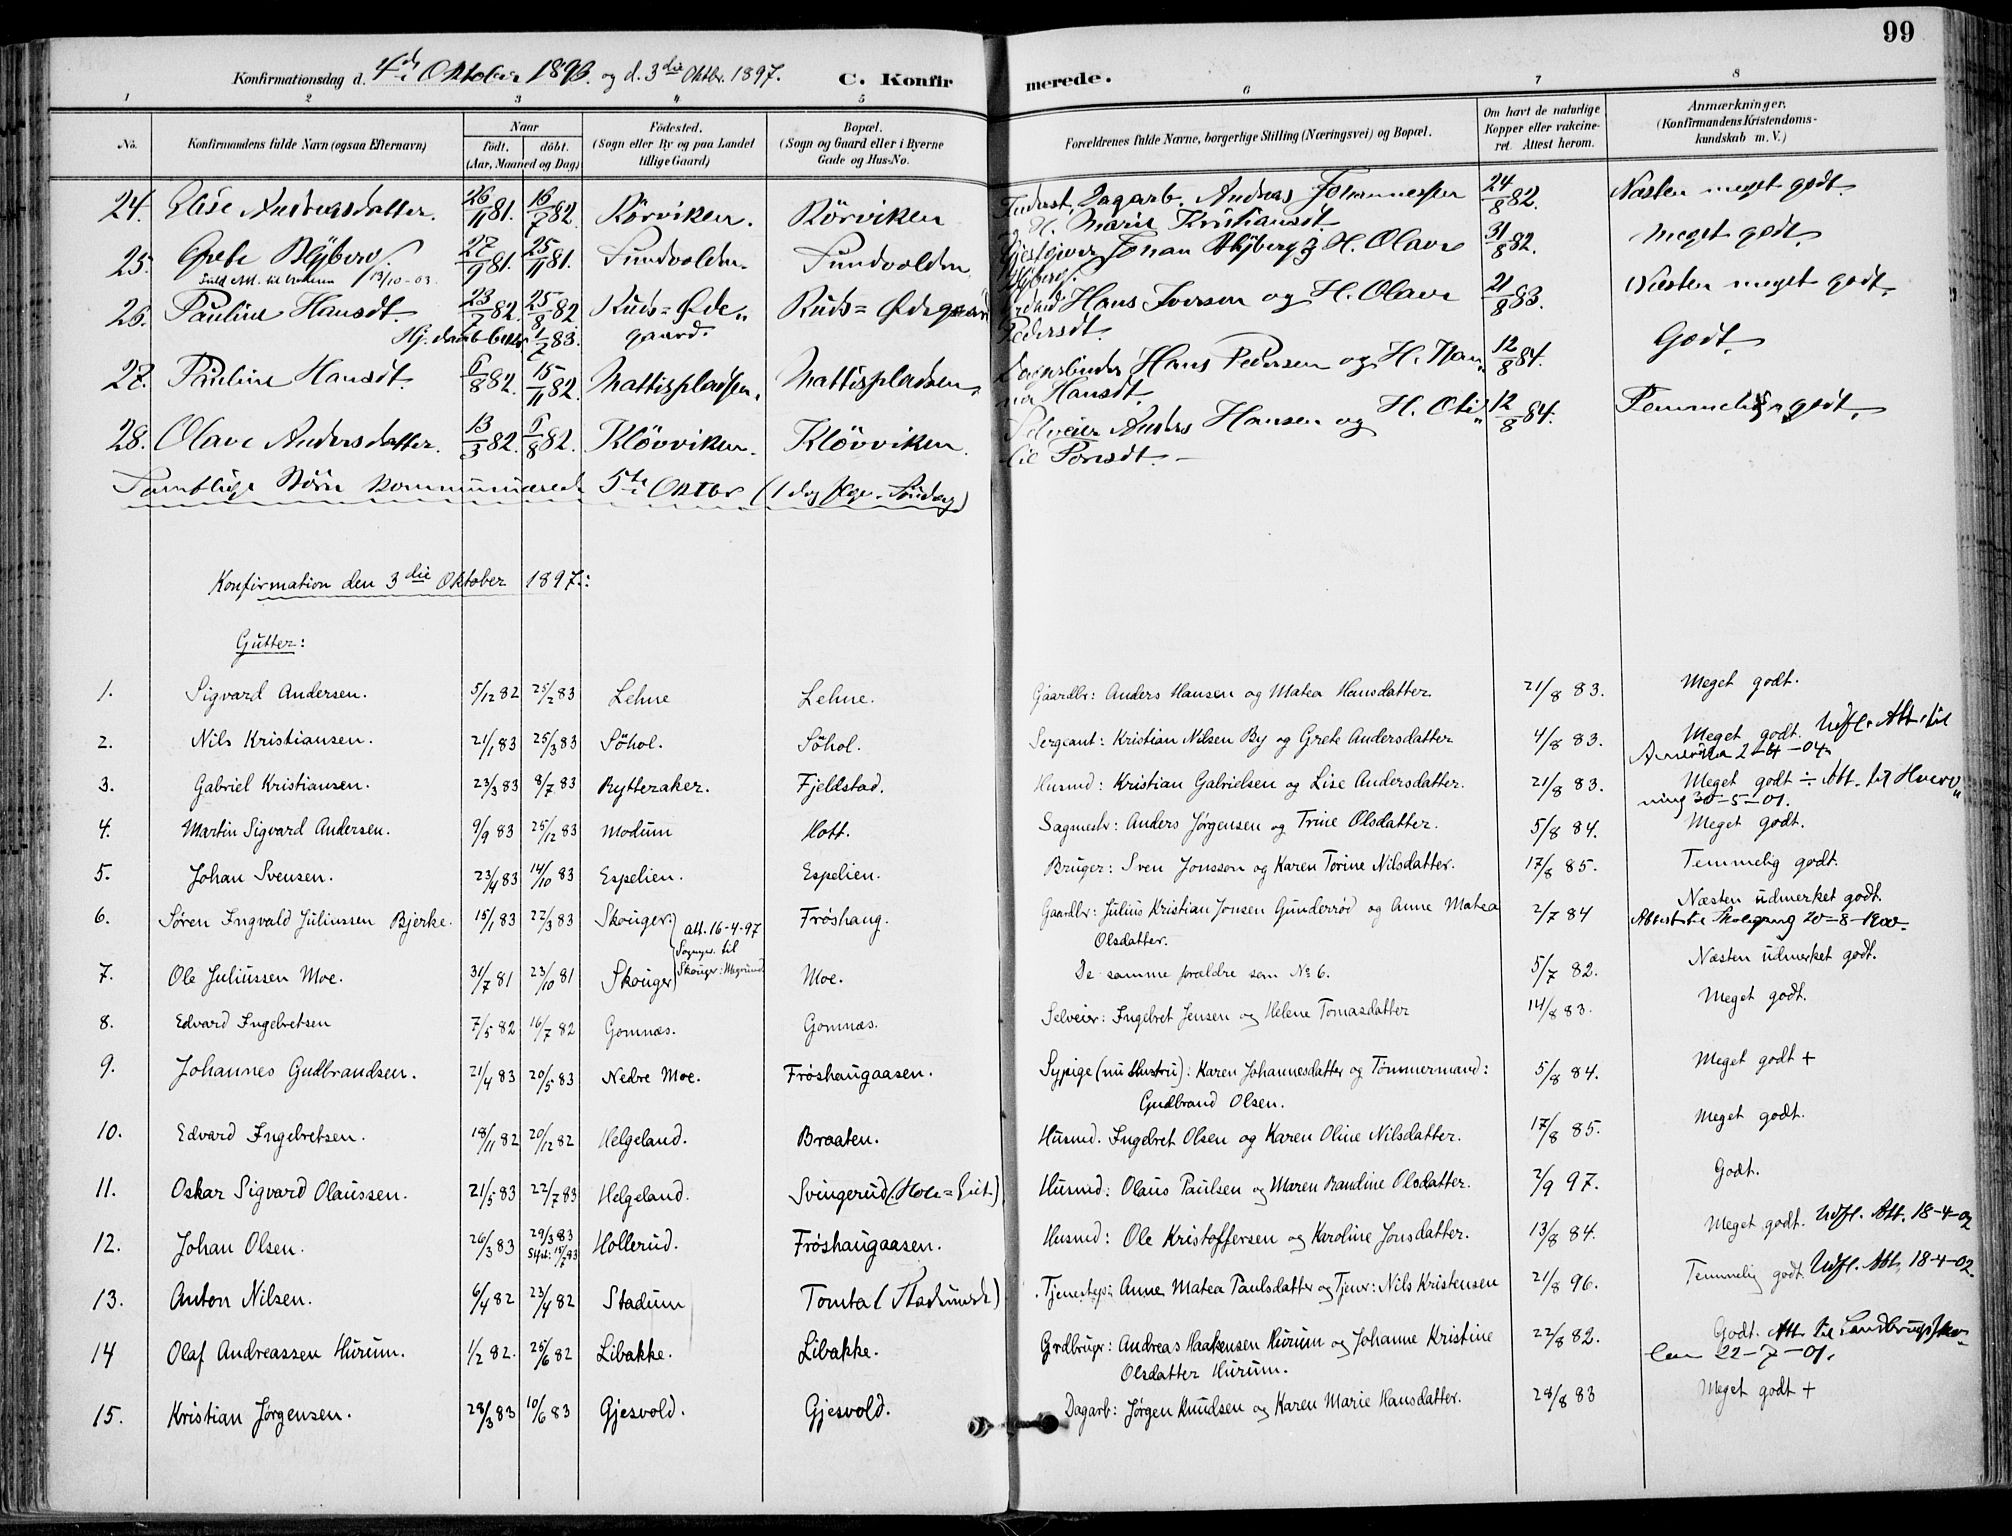 99
Konfirmationsdag d. 4de Oktober 1896. og d. 3die Oktbr. 1897. C. Konfirmerede.
1 2 3 4 5 6 7 8
No. Konfirmandens fulde Navn (ogsaa Efternavn) Naar födt. döbt. (Aar, Maaned og Dag) Födested. (Sogn eller By og paa Landet tillige Gaard) Bopæl. (Sogn og Gaard eller i Byerne Gade og Hus-No. Forældrenes fulde Navne, borgerlige Stilling (Næringsvei) og Bopæl. Om havt de naturlige Kopper eller vakcineret. Attest herom. Anmærkninger. (Konfirmandens Kristendomskundskab m. V.)
24. Elise Andreasdatter. 26/11 81. 16/7 82. Rörviken. Rörviken Inderst, Dagarb. Andreas Johannessen 24/8 82. Næsten meget godt.
og H. Marie Kristiansdt.
25. Grete Blyberg. 27/9 81. 25/11 81. Sundvolden. Sundvolden Gjestgiver Johan Blyberg & H. Olave 31/8 82. Meget godt.
13/10-03. Blyberg.
26. Pauline Hansdt. 23/7 82. 25/8 82 Ruds=Øde„ Ruds=Ødegaard Hans Iversen og H. Olave 21/8 83. Næsten meget godt.
Hj. døbt 1/7 83. gaard. Pedersdt.
27. Pauline Hansdt. 6/8 82. 15/11 82. Mattispladsen. Mattispladsen. Hans Pedersen og H. Han„ 12/8 84. Godt.
na Hansdt.
28. Olave Andersdatter. 13/3 82. 6/8 82. Klövviken. Klövviken. Selveier Anders Hansen og H. Oti„ 12/8 84. Temmelig godt.
lie Torsdt. –
Samtlige Börn kommunicerede 5te Oktbr (1 dag
Konfirmation den 3die Oktober 1897.:
Gutter:
1. Sigvard Andersen. 5/12 82 25/2 83 Lehne Lehne. Gaardbr: Anders Hansen og Matea Hansdatter. 21/8 83. Meget godt.
2. Nils Kristiansen. 21/1 83 25/3 83 Söhol. Söhol. Sergeant: Kristian Nilsen By og Grete Andersdatter 4/8 83. Meget godt. Udfl. Att. til
2-4-04.
3. Gabriel Kristiansen. 23/3 83 8/7 83 Rytteraker. Fjeldstad. Husmd: Kristian Gabrielsen og Lise Andersdatter. 21/8 83. Meget godt ÷ Att. til Hverv„
ning 30-5-01.
4. Martin Sigvard Andersen. 9/9 83 25/12 83 Modum Hott. Sagmestr: Anders Jørgensen og Trine Olsdatter. 5/8 84. Meget godt.
5. Johan Svensen. 23/4 83 14/10 83 Espelien. Espelien. Bruger: Sven Jonsson og Karen Torine Nilsdatter. 17/8 85. Temmelig godt.
6. Søren Ingvald Juliussen Bjerke. 15/1 83 22/3 83 Skouger. Frøshaug. Gaardbr: Julius Kristian Jonsen Gunderrød og Anne Matea 2/7 84 Næsten udmerket godt.
att. 16-4-97 Sognepr. til Skouger: Olsdatter. Attest til Skolegang 20-8-1900.
7. Ole Juliussen Moe. 31/7 81 23/10 81 Skouger Moe. De samme forældre som No 6. 5/7 82. Næsten udmerket godt.
8. Edvard Ingebretsen 7/5 82 16/7 82 Gomnæs. Gomnæs. Selveier: Ingebret Jensen og Helene Tomasdatter 14/8 83. Meget godt.
9. Johannes Gudbrandsen. 21/4 83 20/5 83 Nedre Moe. Frøshaugaasen. Sypige (nu Hustru): Karen Johannesdatter og Tømmermand: 5/8 84. Meget godt +
Gudbrand Olsen.
10. Edvard Ingebretsen. 18/11 82 20/12 82 Helgeland. Braaten. Husmd. Ingebret Olsen og Karen Oline Nilsdatter. 17/8 85. Meget godt.
11. Oskar Sigvard Olaussen. 21/5 83 22/7 83 Helgeland. Svingerud (Hole=Eiet) Husmd: Olaus Paulsen og Maren Randine Olsdatter. 2/9 97. Godt.
12. Johan Olsen. 26/3 83 29/3 83 Hollerud. Frøshaugaasen. Husmd: Ole Kristoffersen og Karoline Jonsdatter. 13/8 84. Meget godt. Udfl. Att. 18-4-02
13. Anton Nilsen. 6/4 82 23/4 82 Stadum Tomta ( Tjenestepi: Anne Matea Paulsdatter og Tjenr: Nils Kristensen 21/8 96. Temmelig godt. Udfl. Att. 18-4-02.
14 Olaf Andreassen Hurum. 1/2 82. 25/6 82 Libakke. Libakke. Grdbrugr: Andreas Haakensen Hurum og Johanne Kristine 22/8 82. Godt. Att. til Landbrugssko„
Olsdatter Hurum. len 22-7-01.
15. Kristian Jørgensen. 28/3 83 10/6 83 Gjesvold. Gjesvold. Dagarb: Jørgen Knudsen og Karen Marie Hansdatter. 28/8 83 Meget godt +